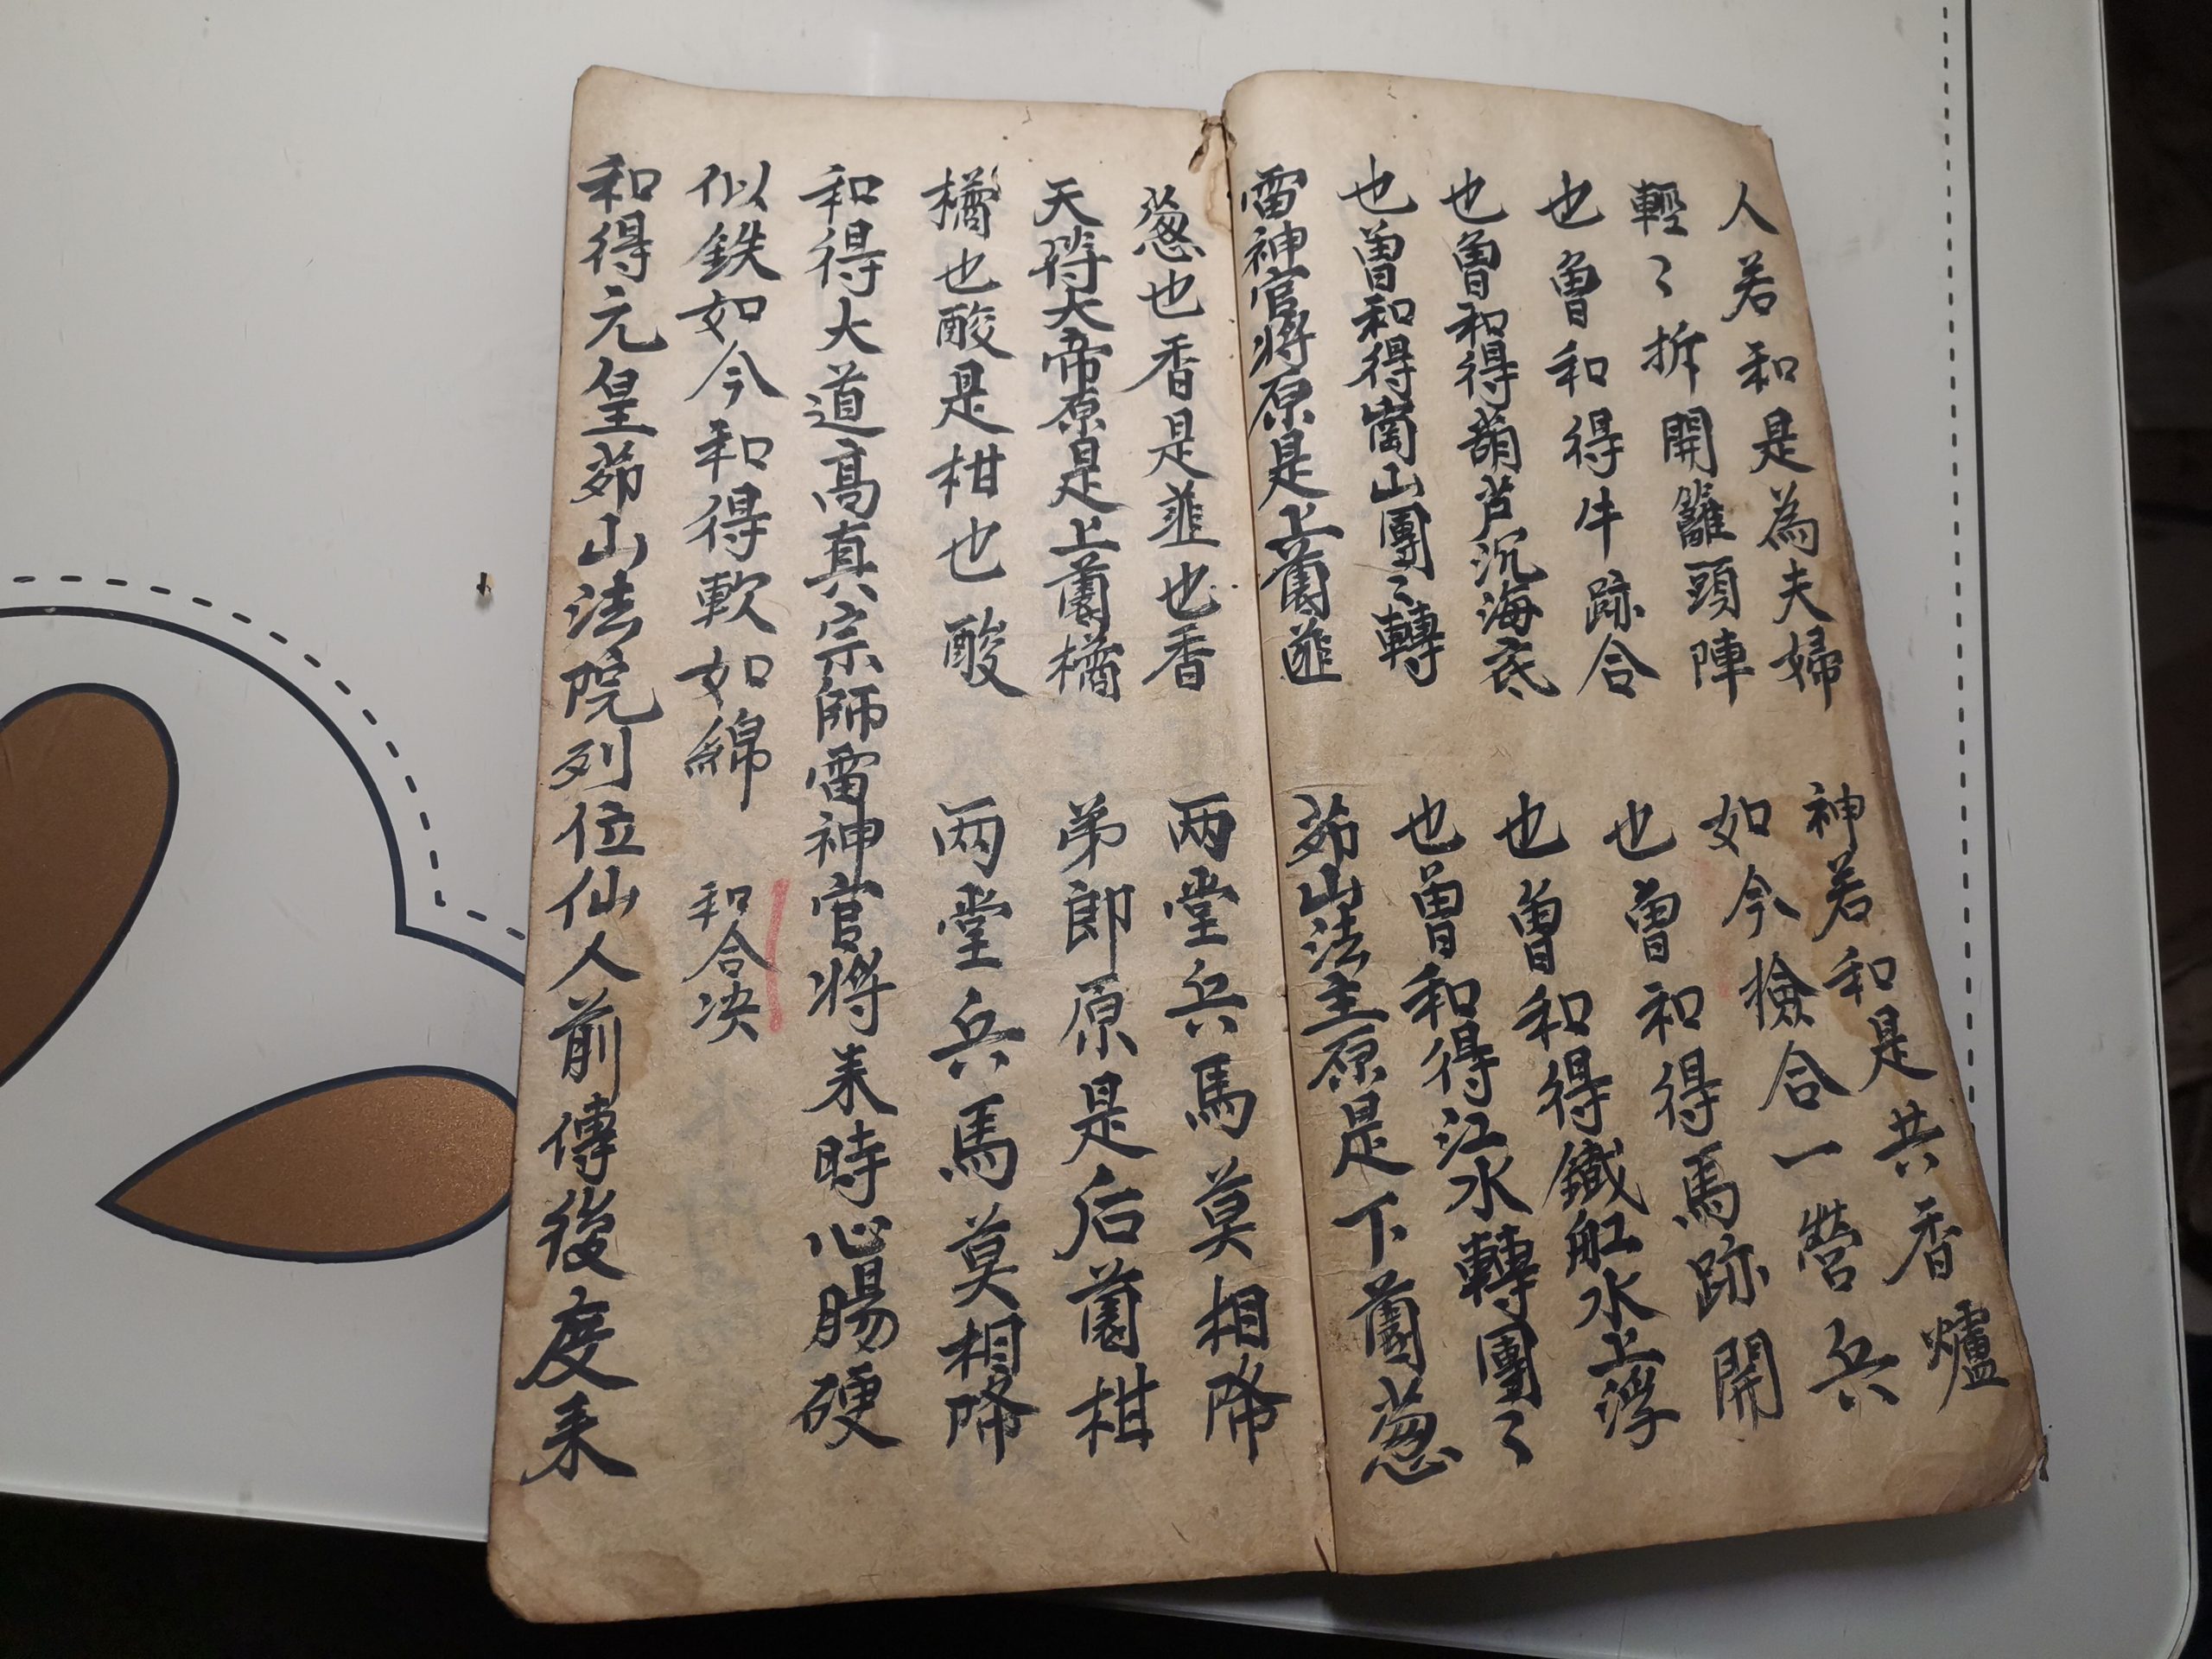 人若和是為夫婦 神若和是共香爐
輕々拆開籬頭陣 如今撿合一營兵
也曾和得牛跡合 也曾和得馬跡開
也曾和得葫芦沉海底 也曾和得鐵舡水上浮
也曾和得崗山團々轉 也曾和得江水轉團々
雷神官將原是上薗韮 茆山法主原是下薗葱
葱也香是韮也香 两堂兵馬莫相降
天符大帝原是上薗橘 弟郎原是后薗柑
橘也酸是柑也酸 两堂兵馬莫相降
和得大道高真宗師雷神官將来時心腸硬
似鉄如今和得軟如綿 和合决
和得元皇茆山法院列位仙人前傳後度来